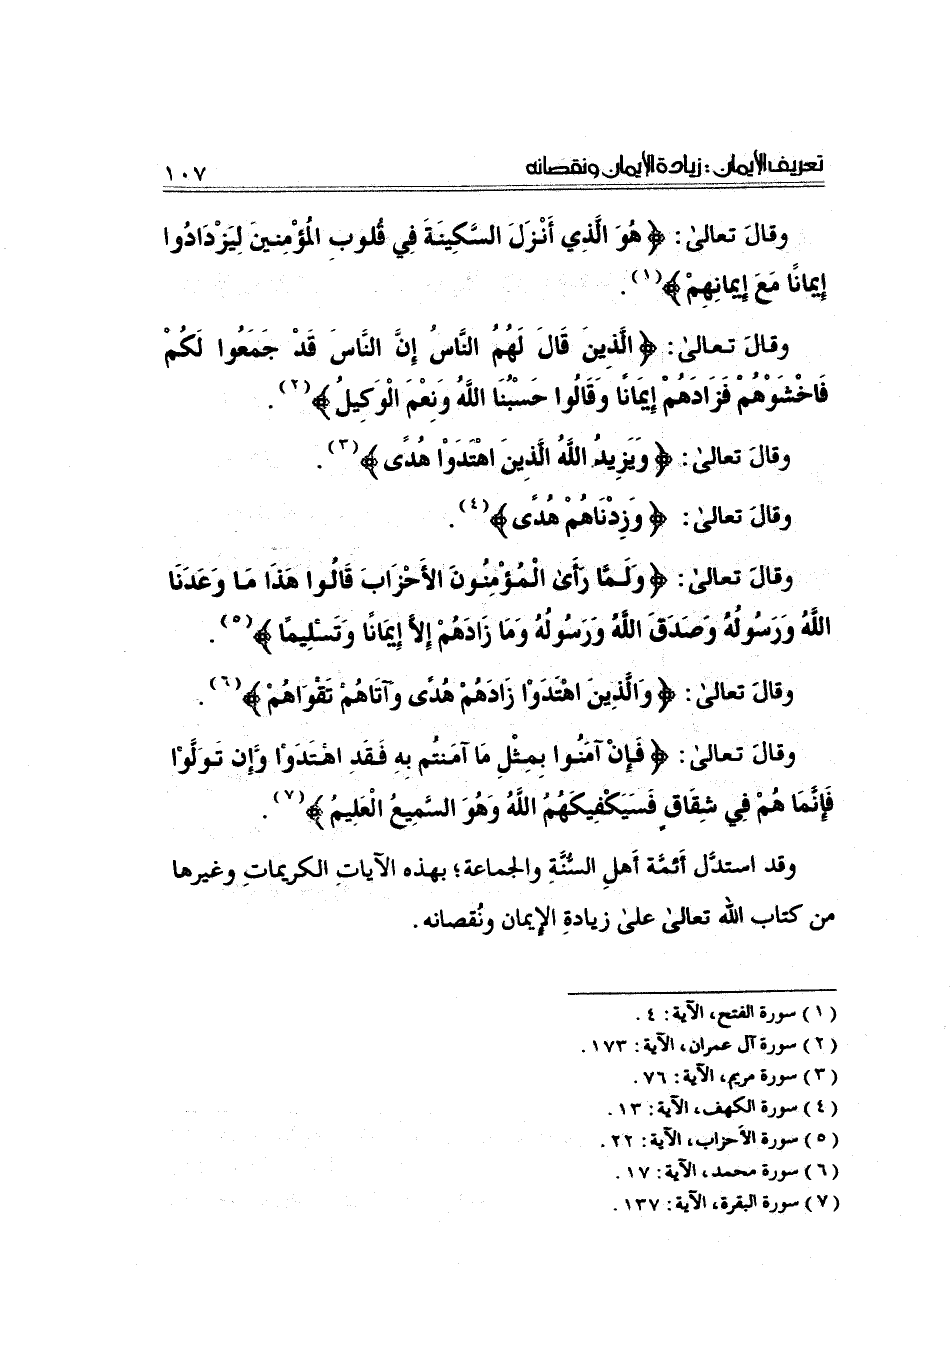 تعريف الأيمان : زيادة الأيمان ونقصانه ١٠٧
وقالَ تعالىٰ : ﴿ هُوَ الَّذِي أَنْزَلَ السَّكِينَةَ فِي قُلوبِ المُؤْمِنِينَ لِيَزْدَادُوا
إِيمانًا مَعَ إِيمَانِهِمْ ﴾(١) .
وقالَ تعالىٰ : ﴿ الَّذِينَ قَالَ لَهُمُ النَّاسُ إِنَّ النَّاسَ قَدْ جَمَعُوا لَكُمْ
فَاخْشَوْهُمْ فَزَادَهُمْ إِيمَانًا وَقَالُوا حَسْبُنَا اللَّهُ وَنِعْمَ الْوَكِيلُ ﴾(٢) .
وقالَ تعالىٰ : ﴿ وَيَزِيدُ اللَّهُ الَّذِينَ اهْتَدَوْا هُدًى ﴾(٣) .
وقالَ تعالىٰ : ﴿ وَزِدْنَاهُمْ هُدًى ﴾(٤) .
وقالَ تعالىٰ : ﴿ وَلَمَّا رَأَىٰ الْمُؤْمِنُونَ الأَحْزَابَ قَالُوا هَذَا مَا وَعَدَنَا
اللَّهُ وَرَسُولُهُ وَصَدَقَ اللَّهُ وَرَسُولُهُ وَمَا زَادَهُمْ إِلاَّ إِيمَانًا وَتَسْلِيمًا ﴾(٥) .
وقالَ تعالىٰ : ﴿ وَالَّذِينَ اهْتَدَوْا زَادَهُمْ هُدًى وَآتَاهُمْ تَقْوَاهُمْ ﴾(٦) .
وقالَ تعالىٰ : ﴿ فَإِنْ آمَنُوا بِمِثْلِ مَا آمَنتُم بِهِ فَقَدِ اهْتَدَوْا وَّإِن تَوَلَّوْا
فَإِنَّمَا هُمْ فِي شِقَاقٍ فَسَيَكْفِيكَهُمُ اللَّهُ وَهُوَ السَّمِيعُ الْعَلِيمُ ﴾(٧) .
وقد استدَّل أَئمَّة أهلِ السُّنَّةِ والجماعة؛ بهذه الآياتِ الكريماتِ وغيرها
من كتاب الله تعالىٰ علىٰ زيادةِ الإيمان ونُقصانه .
(١) سورة الفتح، الآية : ٤ .
(٢) سورة آل عمران، الآية : ١٧٣ .
(٣) سورة مريم، الآية : ٧٦ .
(٤) سورة الكهف، الآية : ١٣ .
(٥) سورة الأحزاب، الآية : ٢٢ .
(٦) سورة محمد، الآية : ١٧ .
(٧) سورة البقرة، الآية : ١٣٧ .